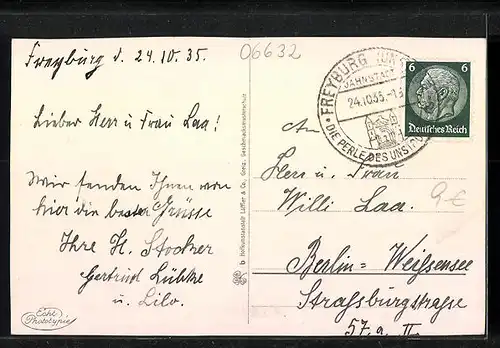 Freyburg d. 24.10.35.
06632
Lieber Herr u. Frau Laa!
Wir senden Ihnen von
hier die besten Grüsse
Ihre H. Stockzer
Gertrud Lübke
u. Lilo.
Echt
Phototypie
FREYBURG (UN
JAHNSTADT
24.10.35.-1
DIE PERLE DES UNSTRU
6 6
Deutsches Reich
An
Herr u. Frau
Willi Laa.
9€
Berlin=Weißensee
Straßburgstraße
57.a. II